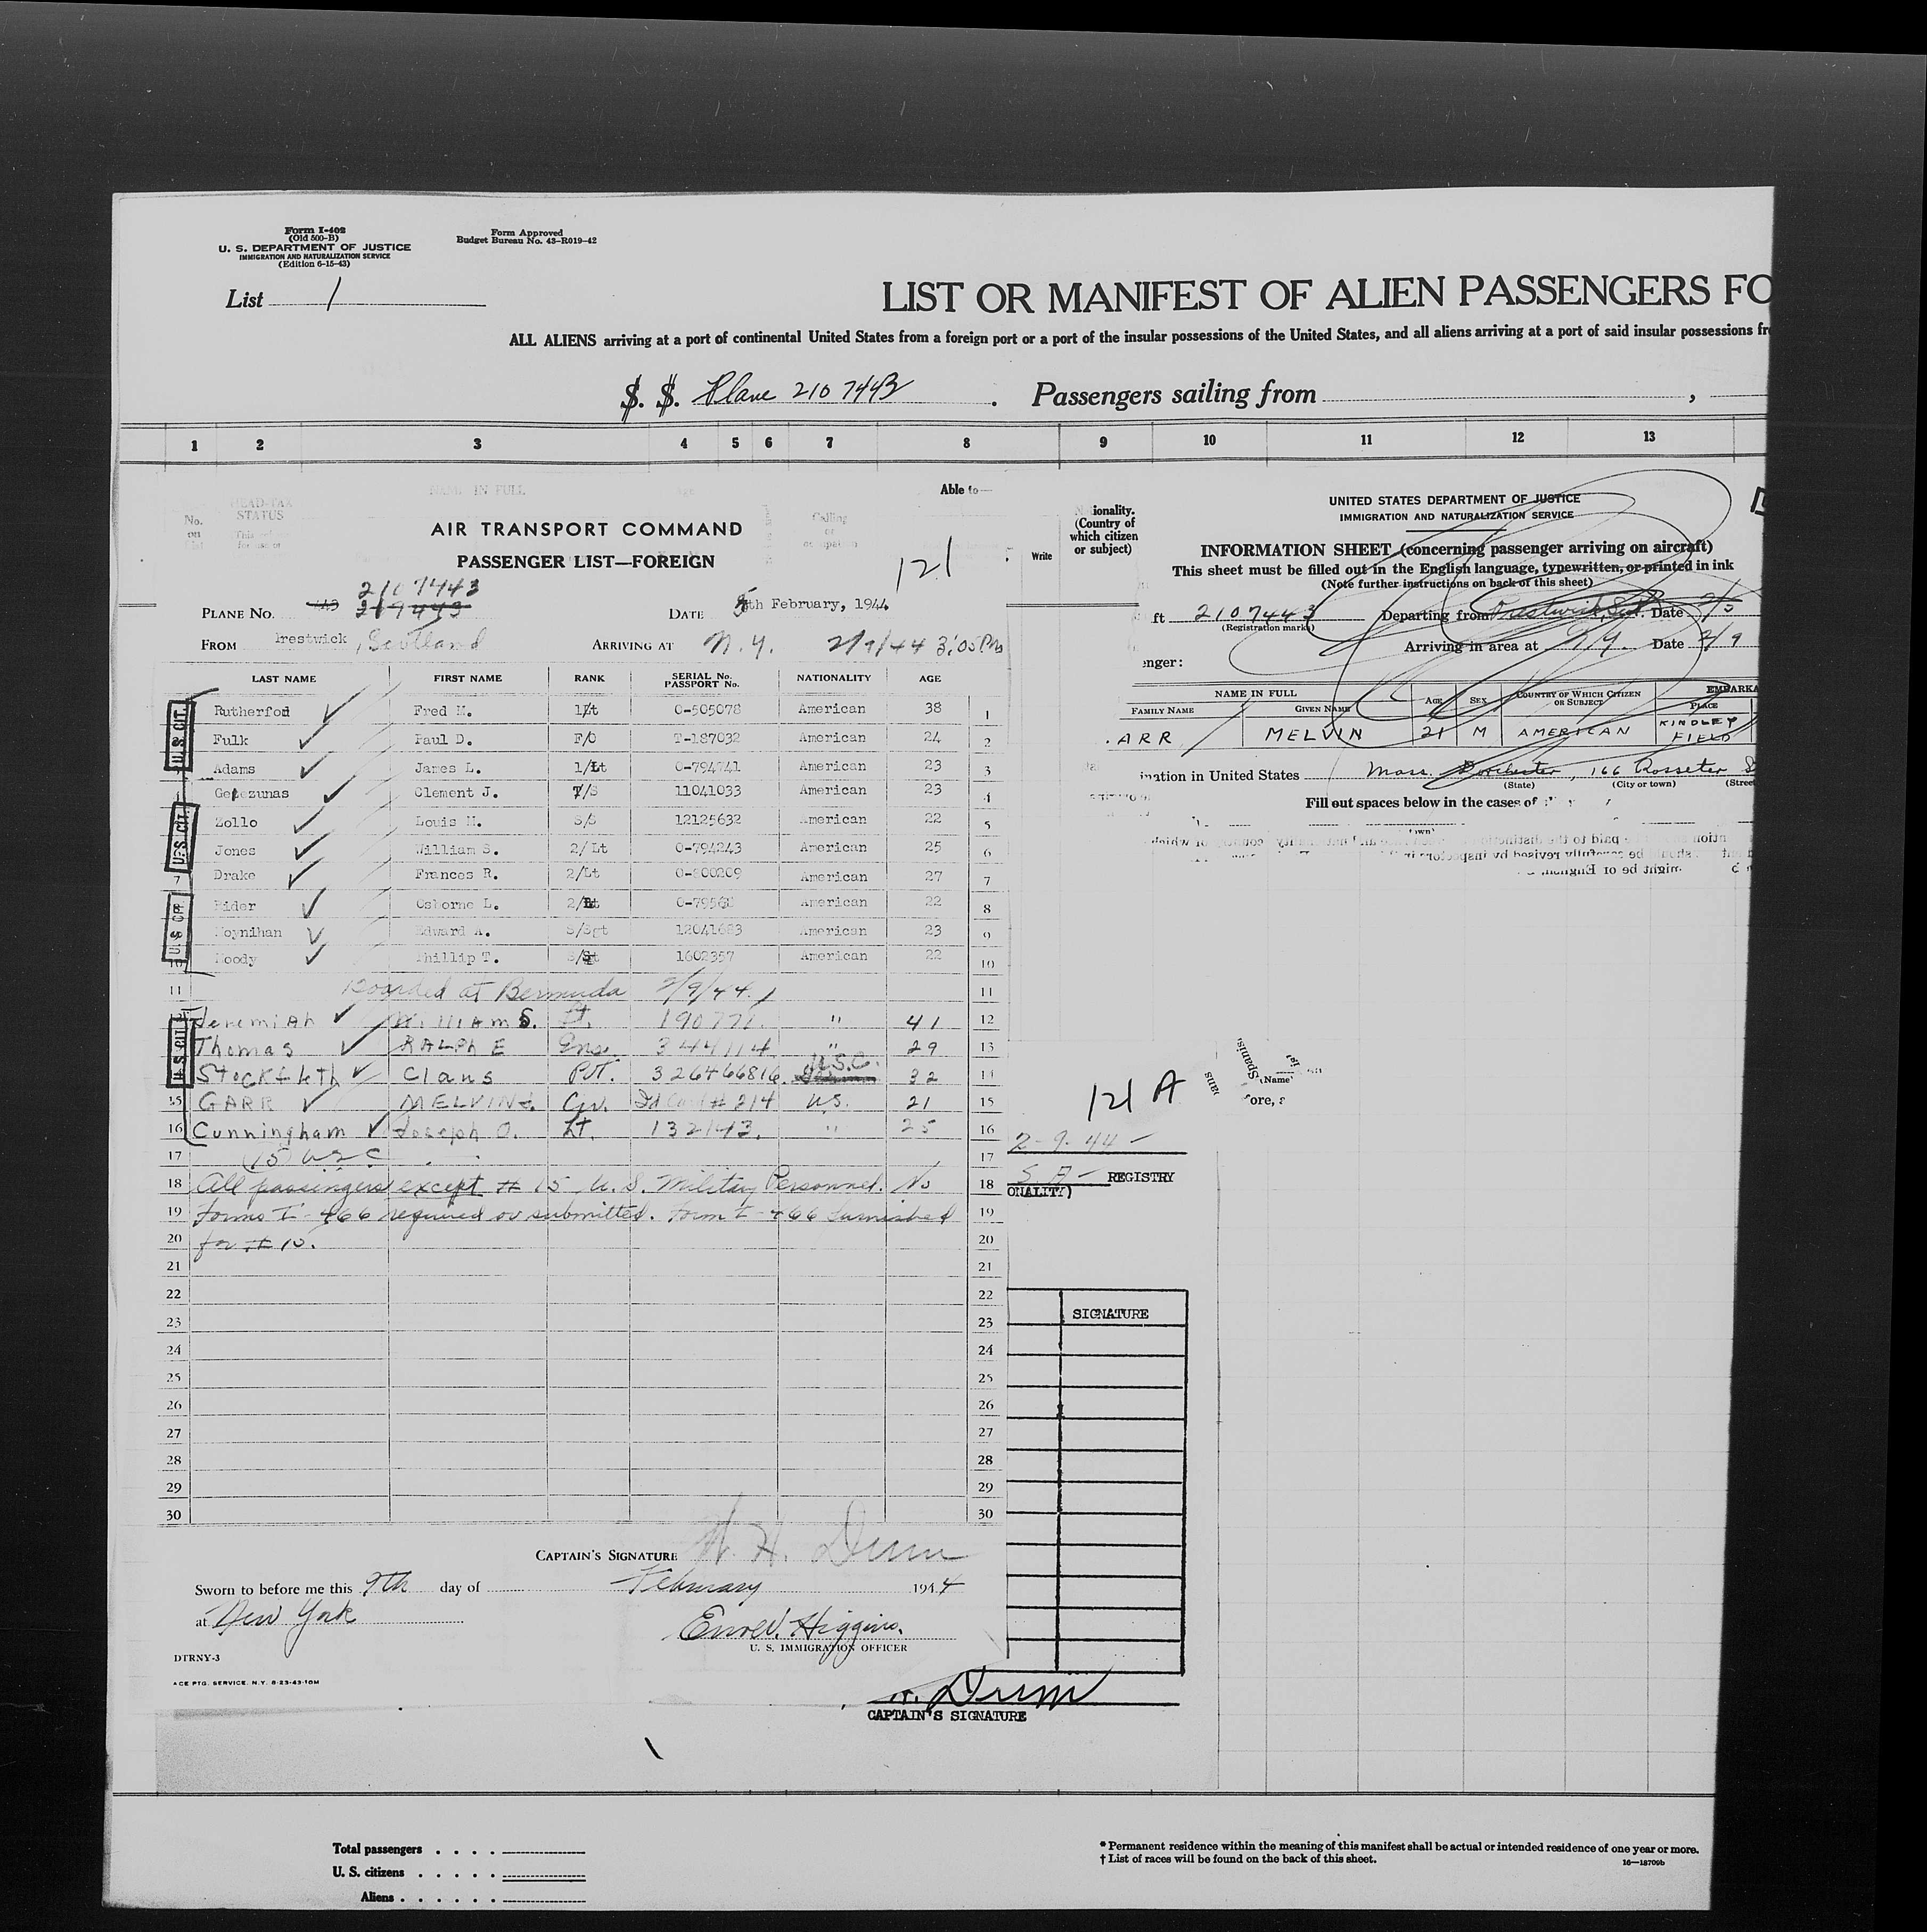 Form I-402
(Old 500-B)
U. S. DEPARTMENT OF JUSTICE
IMMIGRATION AND NATURALIZATION SERVICE
(Edition 6-15-43)
Form Approved
Budget Bureau No. 43-R019-42
List 1
LIST OR MANIFEST OF ALIEN PASSENGERS FO
ALL ALIENS arriving at a port of continental United States from a foreign port or a port of the insular possessions of the United States, and all aliens arriving at a port of said insular possessions fr
S. S. Plane 210 7443. Passengers sailing from ,
1 2 3 4 5 6 7 8 9 10 11 12 13
HEAD-TAX
STATUS
NAME IN FULL
Able to—
No.
on
AIR TRANSPORT COMMAND
PASSENGER LIST—FOREIGN
121
2107443
PLANE NO. 443 219443
DATE 5th February, 1944
FROM Prestwick, Scotland
ARRIVING AT N.Y. 2/9/44 3:05 PM
LAST NAME FIRST NAME RANK SERIAL No. PASSPORT No. NATIONALITY AGE
U.S. CIT.
Rutherford Fred M. 1/Lt O-505078 American 38 1
Fulk Paul D. F/O T-187032 American 24 2
Adams James L. 1/Lt O-794741 American 23 3
Clement J. T/S 11041033 American 23 4
Zollo Louis M. S/S 12125632 American 22 5
U.S. CIT.
Jones William S. 2/Lt O-794243 American 25 6
7 Drake Frances R. 2/Lt O-800209 American 27 7
Rider Osborne L. 2/Lt American 22 8
U.S. CIT.
Moynihan Edward A. S/Sgt 12041683 American 23 9
10 Moody Phillip T. 1602357 American 22 10
11 Boarded at Bermuda 2/9/44. 11
12 Jeremiah William S. 190771. " 41 12
Thomas RALPH E Ens. 344114. " 29 13
U.S. CIT.
Stockfleth Clans Pvt. 326466816. U.S.C. 32 14
15 GARR MELVIN Civ. Id Card # 214 U.S. 21 15
16 Cunningham Joseph O. Lt. 132143. " 25 16
17 (15) USC 17
18 All passengers except # 15 U.S. Military Personnel. No 18
19 forms I-466 required or submitted. Form I-466 furnished 19
20 for # 15. 20
21 21
22 22
23 23
24 24
25 25
26 26
27 27
28 28
29 29
30 30
CAPTAIN'S SIGNATURE W. H. Dunn
Sworn to before me this 9th day of February 1944
at New York
Higgins.
U. S. IMMIGRATION OFFICER
DTRNY-3
ACE PTG. SERVICE. N.Y. 8-23-43-10M
ionality.
(Country of
which citizen
or subject)
Write
UNITED STATES DEPARTMENT OF JUSTICE
IMMIGRATION AND NATURALIZATION SERVICE
INFORMATION SHEET (concerning passenger arriving on aircraft)
This sheet must be filled out in the English language, typewritten, or printed in ink
(Note further instructions on back of this sheet)
ft 2107443 Departing from Prestwick, Scot. Date 2/5
(Registration marks)
Arriving in area at N.Y. Date 2/9
enger:
NAME IN FULL AGE SEX COUNTRY OF WHICH CITIZEN OR SUBJECT EMBARKA
FAMILY NAME GIVEN NAME PLACE
ARR MELVIN 21 M AMERICAN KINDLEY FIELD
ination in United States Mass. Dorchester, 166 Rosseter S
(State) (City or town) (Stree
Fill out spaces below in the cases of
121 A
(Name
ore, a
2-9-44
REGISTRY
ONALITY)
SIGNATURE
Dunn
CAPTAIN'S SIGNATURE
Total passengers . . . .
U. S. citizens . . . . .
Aliens . . . . . .
* Permanent residence within the meaning of this manifest shall be actual or intended residence of one year or more.
† List of races will be found on the back of this sheet.
16—18709b